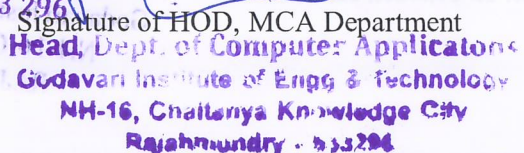 3 296
Signature of HOD, MCA Department
Head, Dept. of Computer Applicatons
Godavari Institute of Engg & Technology
NH-16, Chaitanya Knowledge City
Rajahmundry - 533296